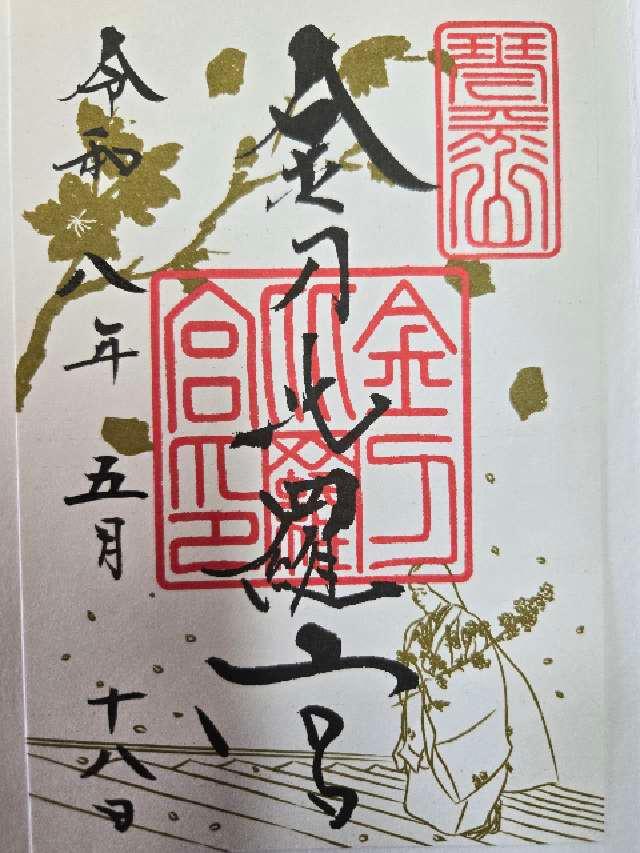 琴平山
金刀比羅宮
金刀比羅宮印
令和八年五月十八日